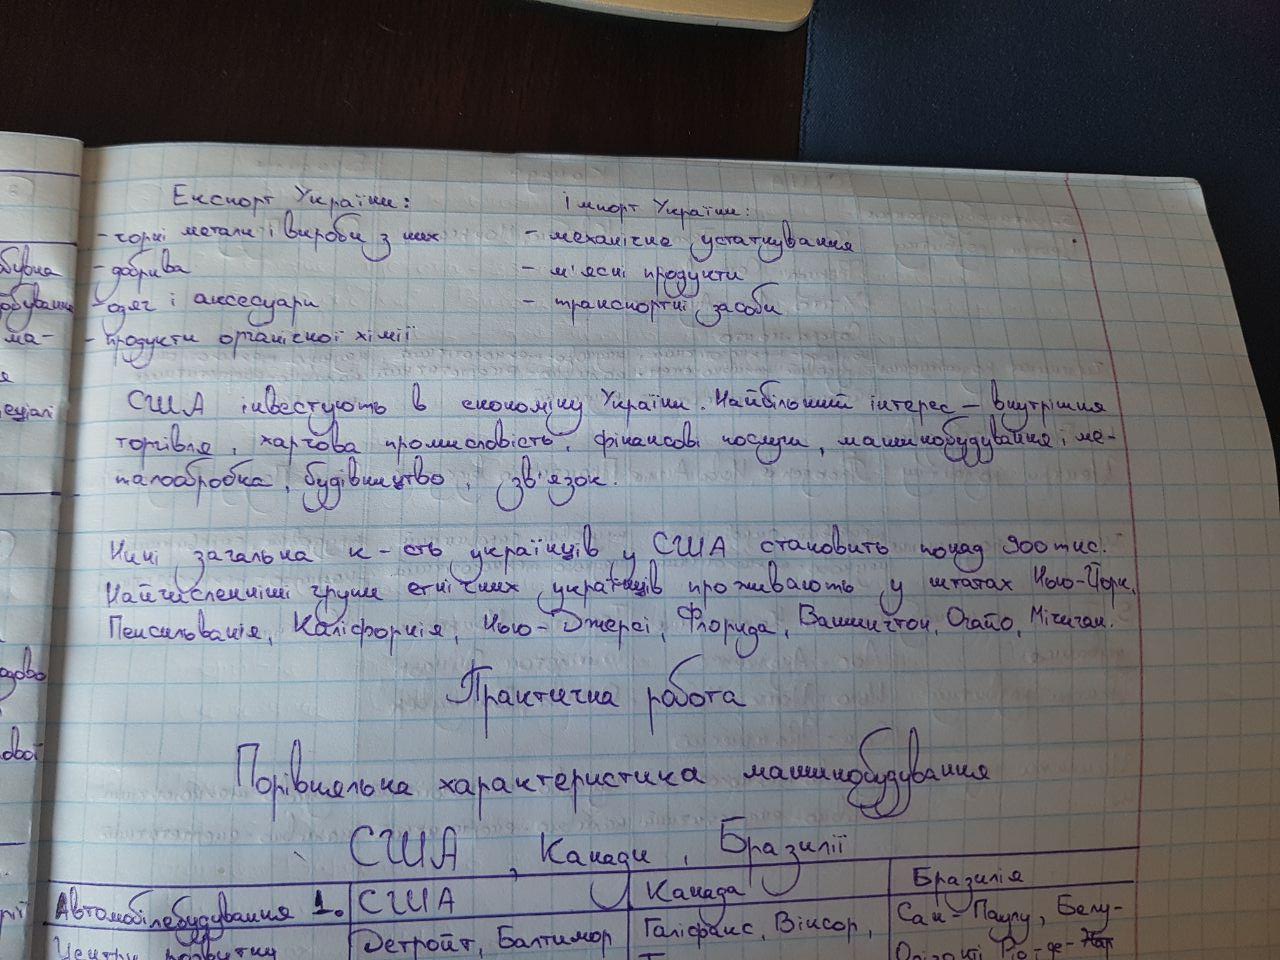 Експорт України:
Імпорт України:
- чорні метали і вироби з них
- механічне устаткування
- добрива
- м'ясні продукти
- одяг і аксесуари
- транспортні засоби
- продукти органічної хімії
США інвестують в економіку України. Найбільший інтерес – внутрішня
торгівля, харчова промисловість, фінансові послуги, машинобудування і ме-
талообробка, будівництво, зв'язок.
Нині загальна к-сть українців у США становить понад 900 тис.
Найчисленніші групи етнічних українців проживають у штатах Нью-Йорк,
Пенсильванія, Каліфорнія, Нью-Джерсі, Флорида, Вашингтон, Огайо, Мічиган.
Практична робота
Порівняльна характеристика машинобудування
США, Канади, Бразилії
Автомобілебудування 1.
США
Канада
Бразилія
Центри розвитку
Детройт, Балтимор
Галіфакс, Вінсор,
Сан-Паулу, Белу-
Різонті, Ріо-де-